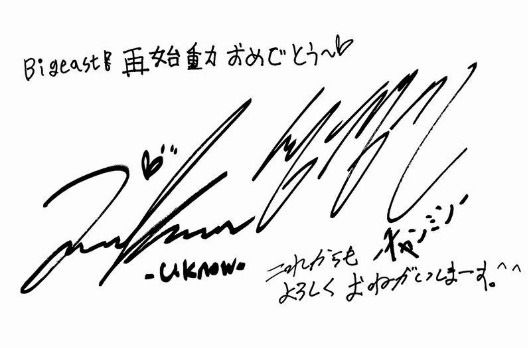 Bigeast 再始動おめでとう〜♡
-U-know-
チャンミン
これからも
よろしくおねがいしまーす。^^